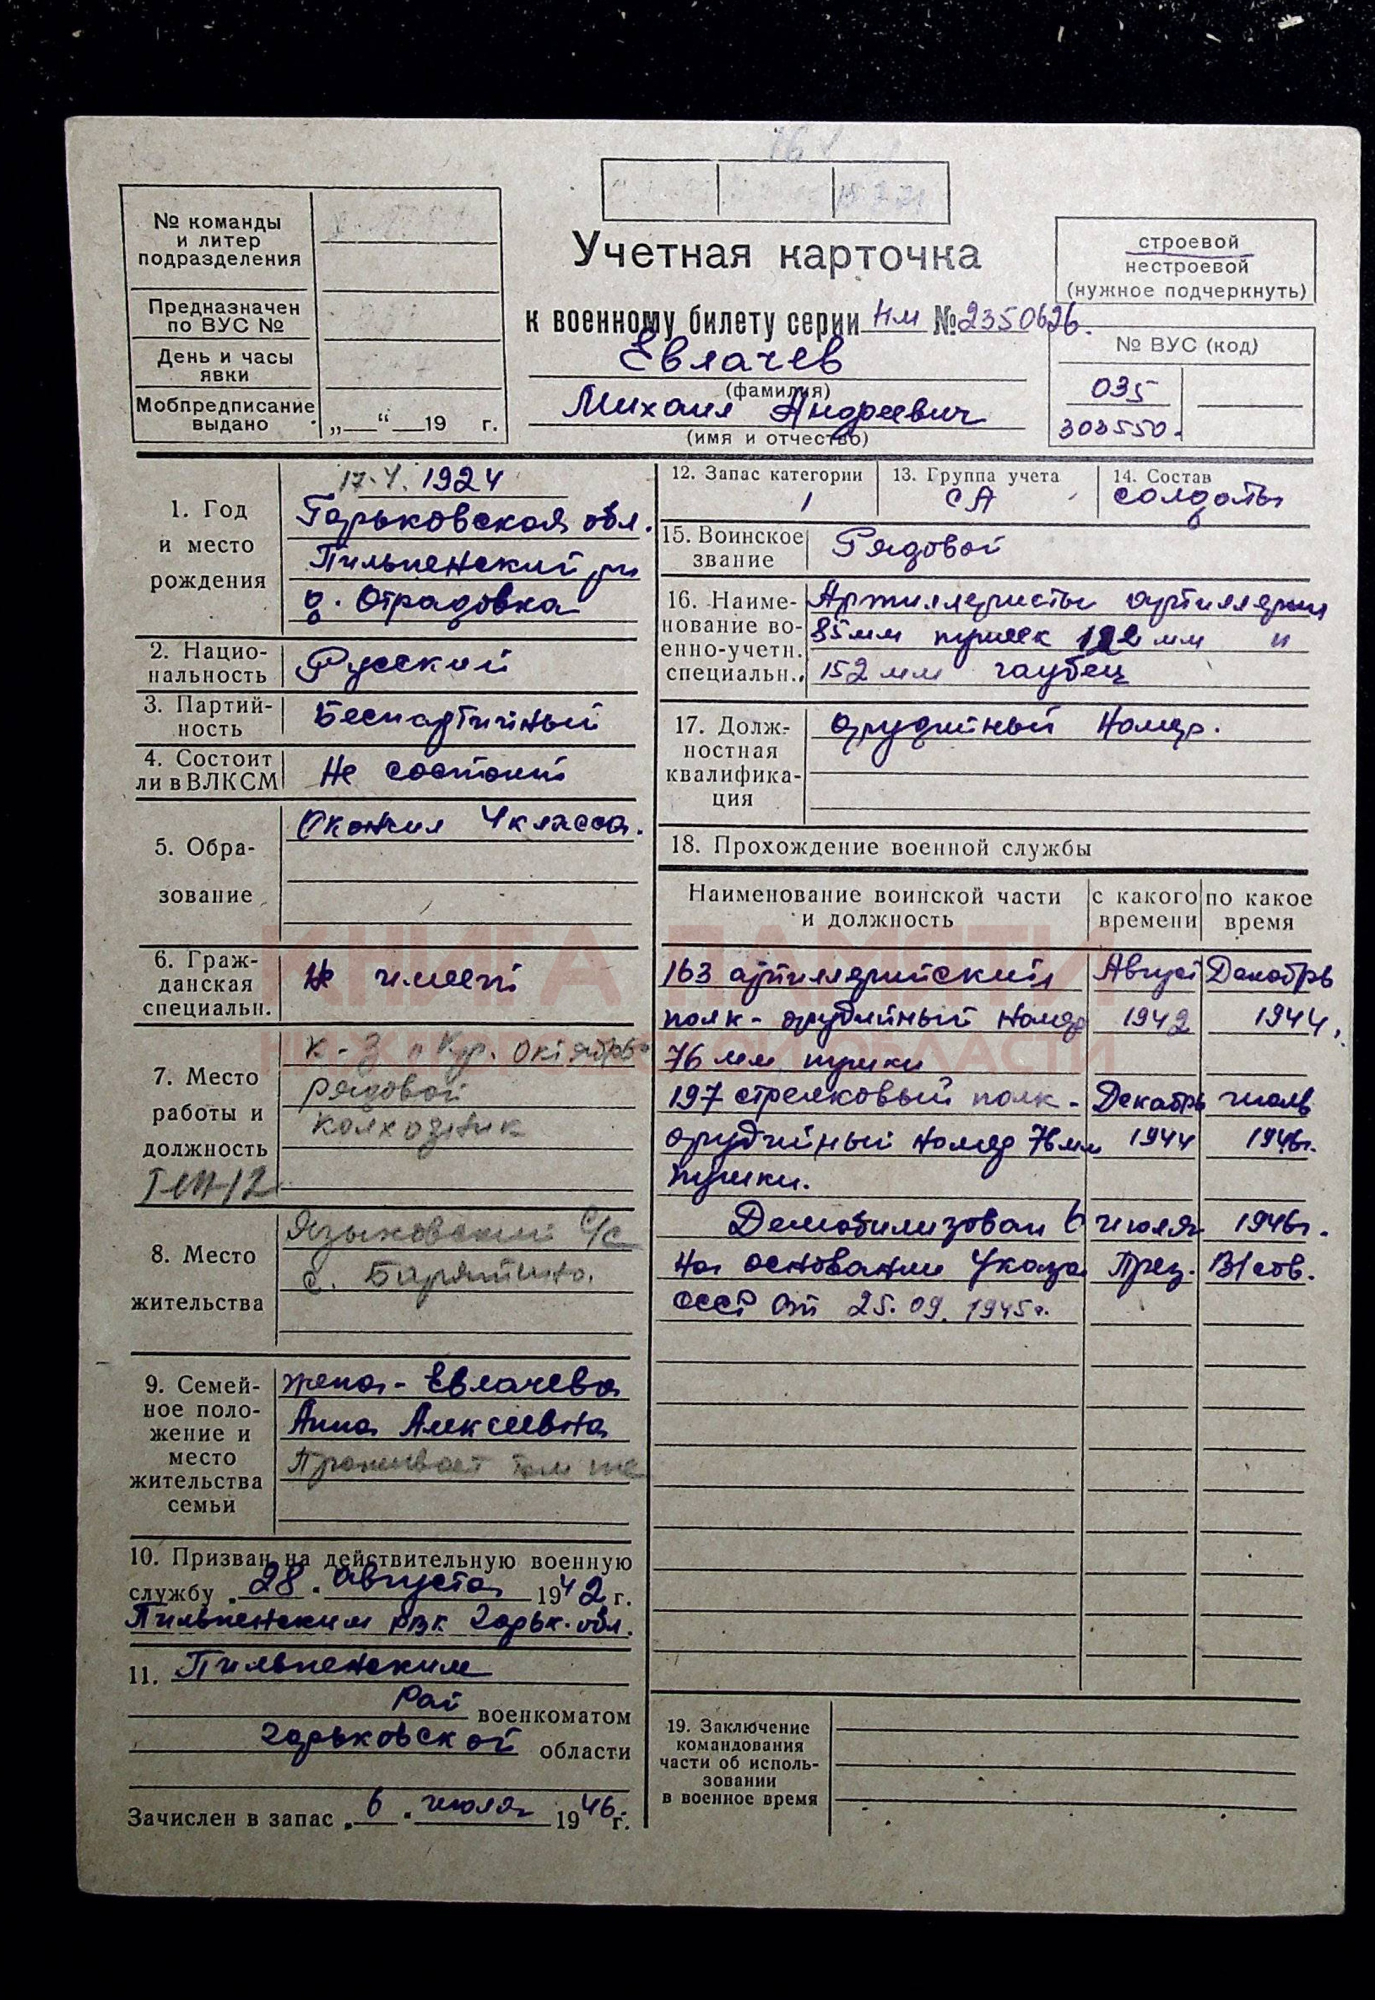 № команды
и литер
подразделения
Предназначен
по ВУС №
День и часы
явки
Мобпредписание
выдано
„ “ 19 г.
Учетная карточка
к военному билету серии НМ № 2350626.
Евлачев
(фамилия)
Михаил Андреевич
(имя и отчество)
строевой
нестроевой
(нужное подчеркнуть)
№ ВУС (код)
035
303550.
1. Год
и место
рождения
1924
Горьковская обл.
Пильненский
д. Отрадовка
2. Нацио-
нальность
Русский
3. Партий-
ность
Беспартийный
4. Состоит
ли в ВЛКСМ
Не состоит
5. Обра-
зование
Окончил 4 класса.
6. Граж-
данская
специальн.
Не имеет
7. Место
работы и
должность
к-з Октябрь
рядовой
колхозник
8. Место
жительства
Языковский с/с
с. Барятино.
9. Семей-
ное поло-
жение и
место
жительства
семьи
жена - Евлачева
Анна Алексеевна
Проживает там же
10. Призван на действительную военную
службу „28“ августа 1942 г.
Пильненским РВК Горьк. обл.
11. Пильненским
Рай военкоматом
Горьковской области
Зачислен в запас „6“ июля 1946 г.
12. Запас категории
1
13. Группа учета
СА
14. Состав
солдаты
15. Воинское
звание
Рядовой
16. Наиме-
нование во-
енно-учетн.
специальн.
Артиллеристы артиллерии
85мм пушек 122 мм и
152 мм гаубец
17. Долж-
ностная
квалифика-
ция
орудийный номер.
18. Прохождение военной службы
Наименование воинской части
и должность
с какого
времени
по какое
время
163 артиллерийский Август Декабрь
полк - орудийный номер 1942 1944.
76 мм пушки
197 стрелковый полк - Декабрь июль
орудийный номер 76мм 1944 1946г.
пушки.
Демобилизован 6 июля 1946г.
на основании Указа През. В/Сов.
СССР от 25.09.1945г.
19. Заключение
командования
части об исполь-
зовании
в военное время
КНИГА ПАМЯТИ
НИЖЕГОРОДСКОЙ ОБЛАСТИ